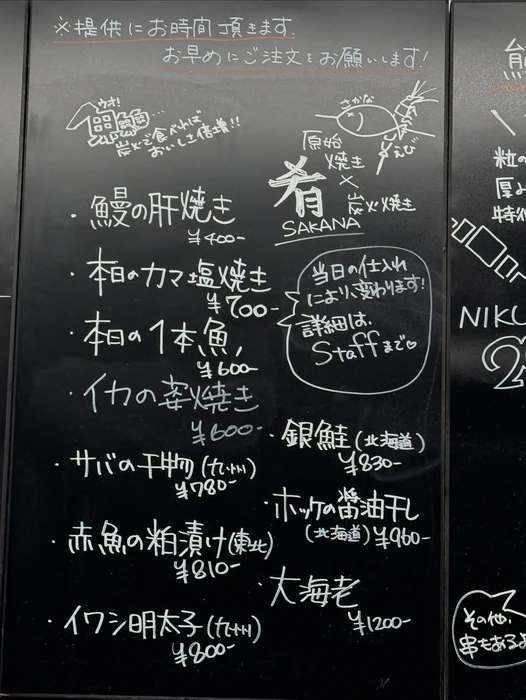 ※提供にお時間頂きます.
お早めにご注文をお願いします!
ウオ!
炭火で食べれば
おいしさ倍増!!
さかな
えび
原始
焼き
×
炭火焼き
肴
SAKANA
・鰻の肝焼き
¥400-
・本日のカマ塩焼き
¥700-
・本日の1本魚,
¥600-
・イカの姿焼き
¥600-
当日の仕入れ
により、変わります!
詳細は、
Staffまで♡
・サバの干物(九州)
¥780-
・赤魚の粕漬け(東北)
¥810-
・イワシ明太子(九州)
¥800-
・銀鮭(北海道)
¥830-
・ホッケの醤油干し
(北海道)¥960-
・大海老
¥1200-
粒の
厚よ
特作
NIKU
2
その他、
串もあるよ